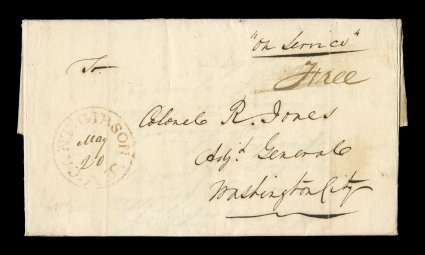 "On Service"
Free
To
CANT. GIBSON
May
20
Colonel R. Jones
Adjt General
Washington City